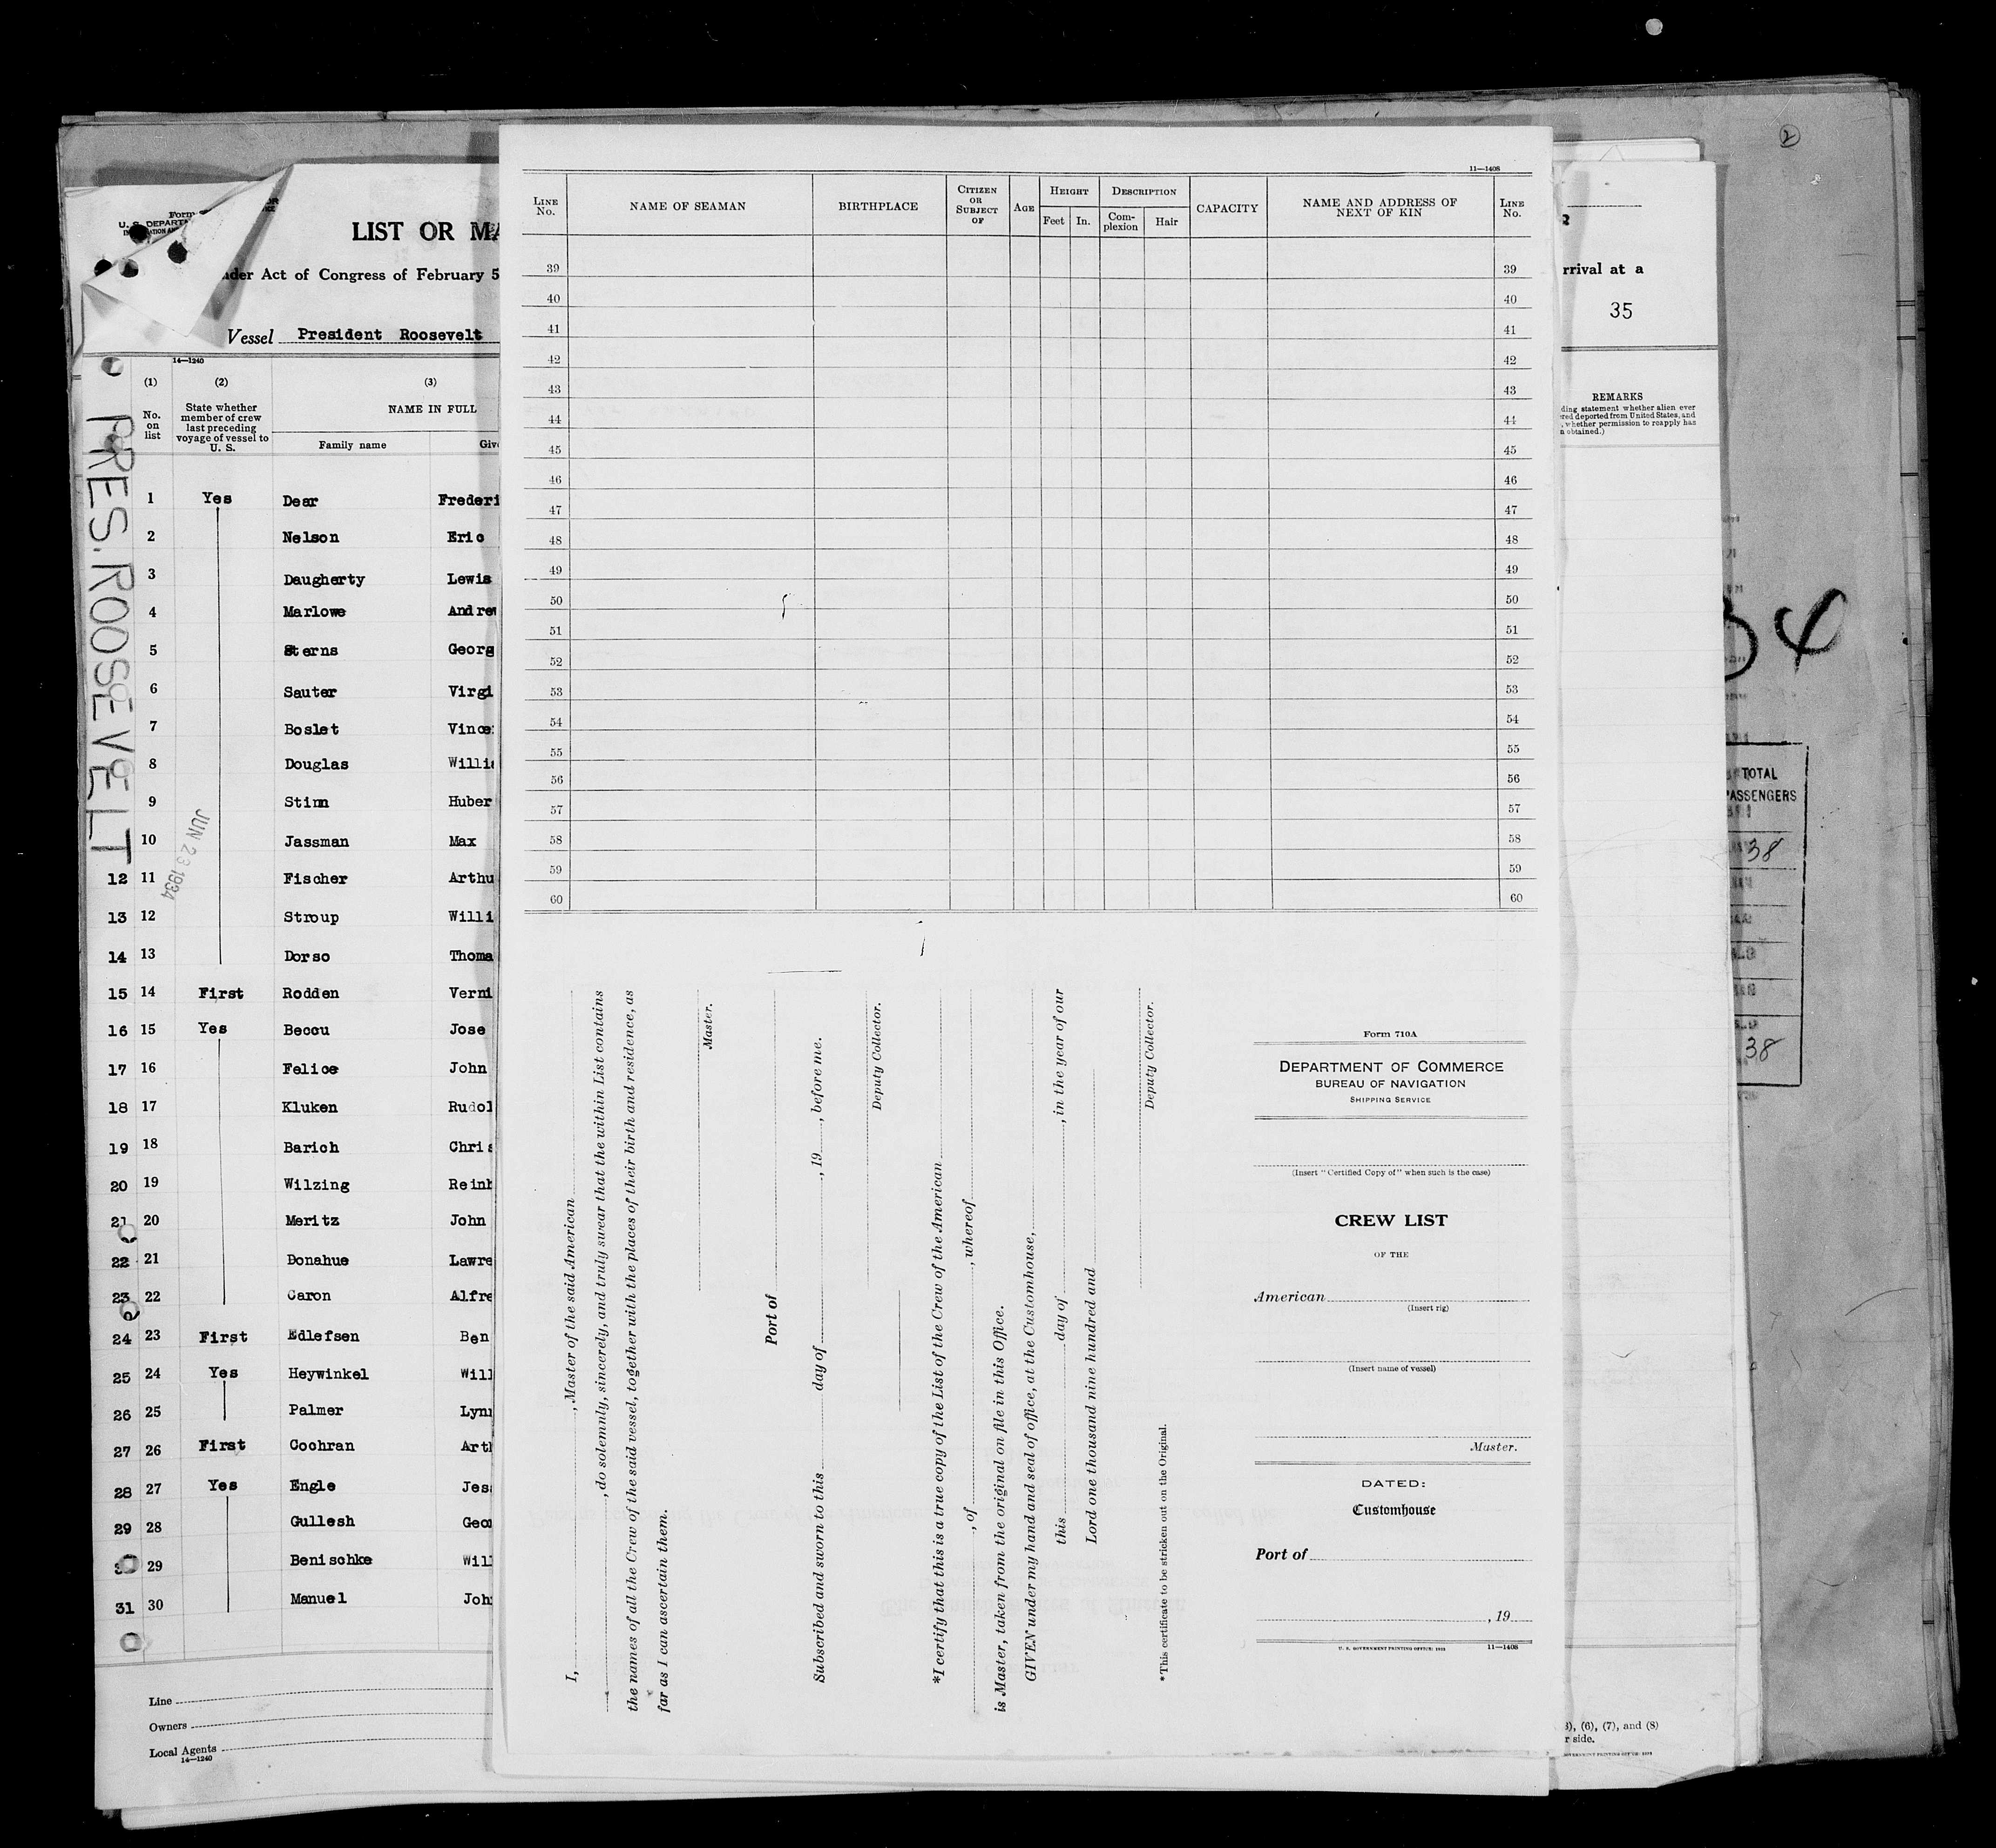 2
Form
U. S. DEPART
LIST OR MA
nder Act of Congress of February 5
Vessel President Roosevelt
14—1240
(1) (2) (3)
No. on list
State whether member of crew last preceding voyage of vessel to U. S.
NAME IN FULL
Family name Giv
PRES. ROOSEVELT
JUN 23 1934
1 Yes Dear Frederi
2 Nelson Eric
3 Daugherty Lewis
4 Marlowe Andrew
5 Sterns Georg
6 Sauter Virgi
7 Boslet Vince
8 Douglas Willi
9 Stinn Huber
10 Jassman Max
12 11 Fischer Arthu
13 12 Stroup Willi
14 13 Dorso Thoma
15 14 First Rodden Verni
16 15 Yes Beccu Jose
17 16 Felice John
18 17 Kluken Rudol
19 18 Barich Chris
20 19 Wilzing Reinh
21 20 Meritz John
22 21 Donahue Lawre
23 22 Caron Alfre
24 23 First Edlefsen Ben
25 24 Yes Heywinkel Will
26 25 Palmer Lynn
27 26 First Cochran Arth
28 27 Yes Engle Jess
29 28 Gullesh Geor
29 Benischke Will
31 30 Manuel John
Line
Owners
Local Agents
14—1240
11—1408
LINE No. NAME OF SEAMAN BIRTHPLACE CITIZEN OR SUBJECT OF AGE HEIGHT Feet In. DESCRIPTION Complexion Hair CAPACITY NAME AND ADDRESS OF NEXT OF KIN LINE No.
39 39
40 40
41 41
42 42
43 43
44 44
45 45
46 46
47 47
48 48
49 49
50 50
51 51
52 52
53 53
54 54
55 55
56 56
57 57
58 58
59 59
60 60
I, , Master of the said American
, do solemnly, sincerely, and truly swear that the within List contains
the names of all the Crew of the said vessel, together with the places of their birth and residence, as
far as I can ascertain them.
Master.
Port of
Subscribed and sworn to this day of , 19 , before me.
Deputy Collector.
*I certify that this is a true copy of the List of the Crew of the American
, of , whereof
is Master, taken from the original on file in this Office.
GIVEN under my hand and seal of office, at the Customhouse,
this day of , in the year of our
Lord one thousand nine hundred and
Deputy Collector.
*This certificate to be stricken out on the Original.
Form 710A
DEPARTMENT OF COMMERCE
BUREAU OF NAVIGATION
SHIPPING SERVICE
(Insert "Certified Copy of" when such is the case)
CREW LIST
OF THE
American
(Insert rig)
(Insert name of vessel)
Master.
DATED:
Customhouse
Port of
, 19
U. S. GOVERNMENT PRINTING OFFICE: 1932 11—1408
rrival at a
35
REMARKS
ding statement whether alien ever
red deported from United States, and
, whether permission to reapply has
n obtained.)
34
TOTAL
PASSENGERS
38
38
3), (6), (7), and (8)
r side.